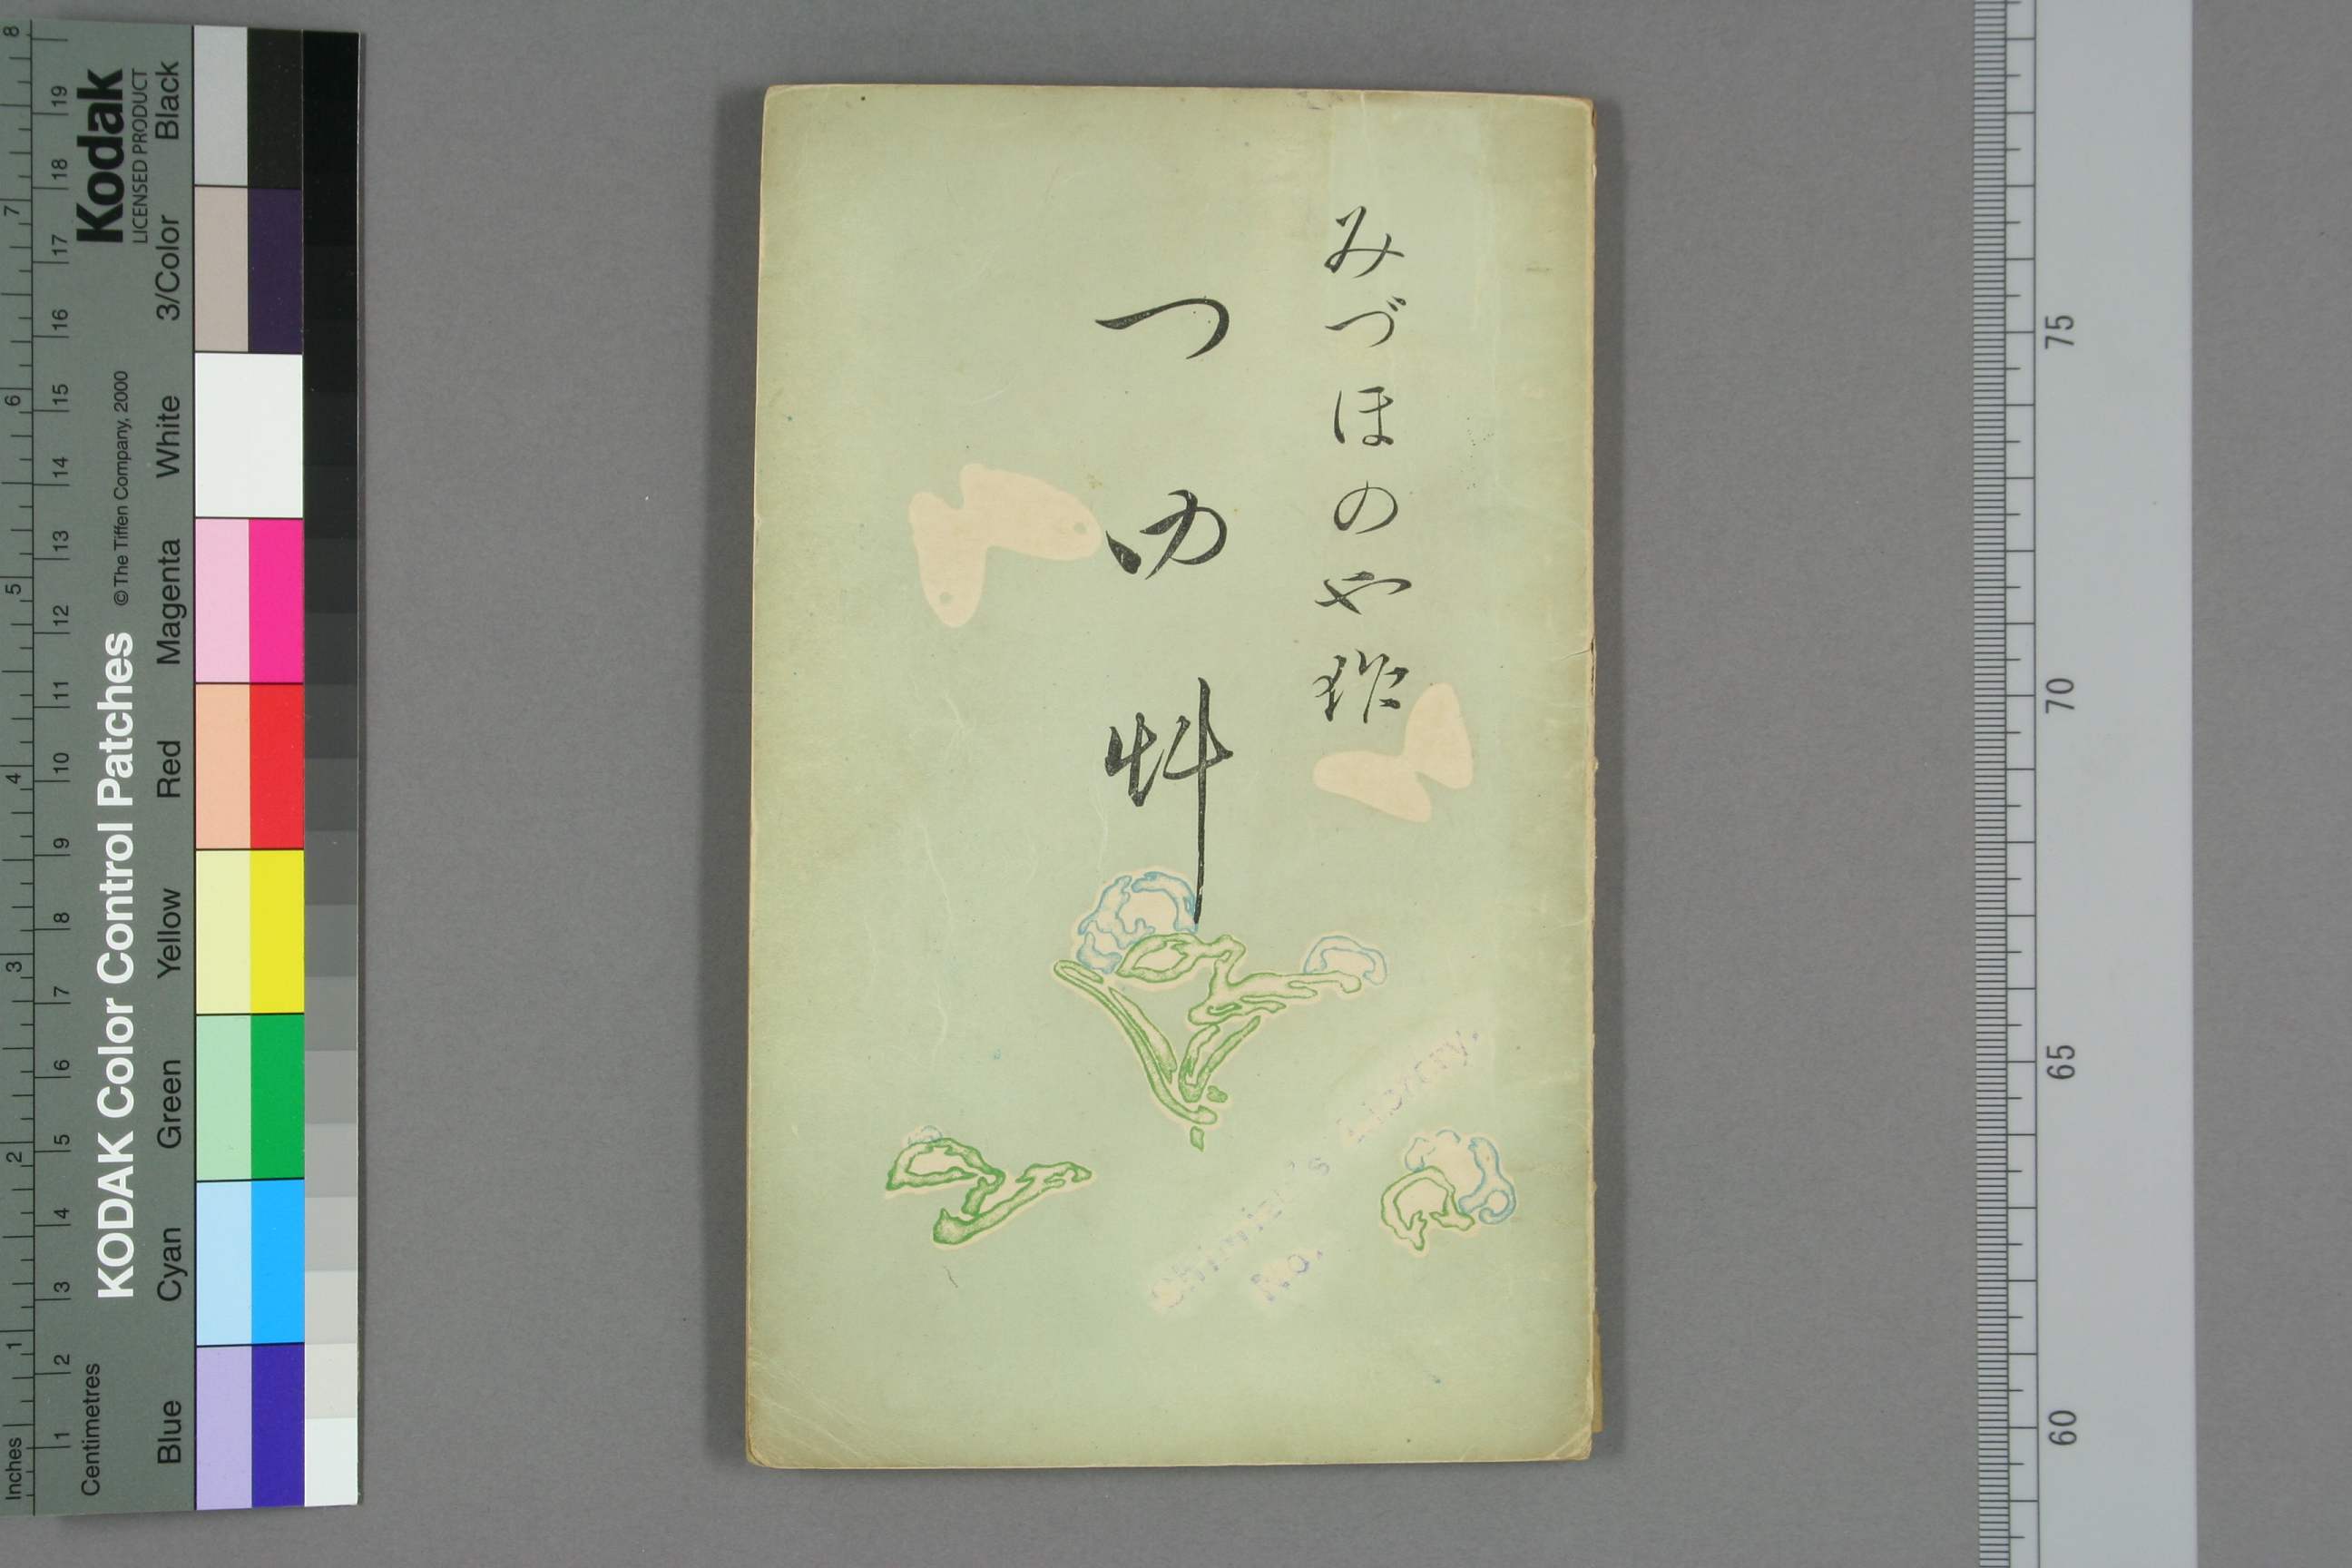 みづほのや作
つゆ艸
Library.
No.
Kodak
LICENSED PRODUCT
KODAK Color Control Patches
© The Tiffen Company, 2000
Blue Cyan Green Yellow Red Magenta White 3/Color Black
Inches 1 2 3 4 5 6 7 8
Centimetres 1 2 3 4 5 6 7 8 9 10 11 12 13 14 15 16 17 18 19
75
70
65
60